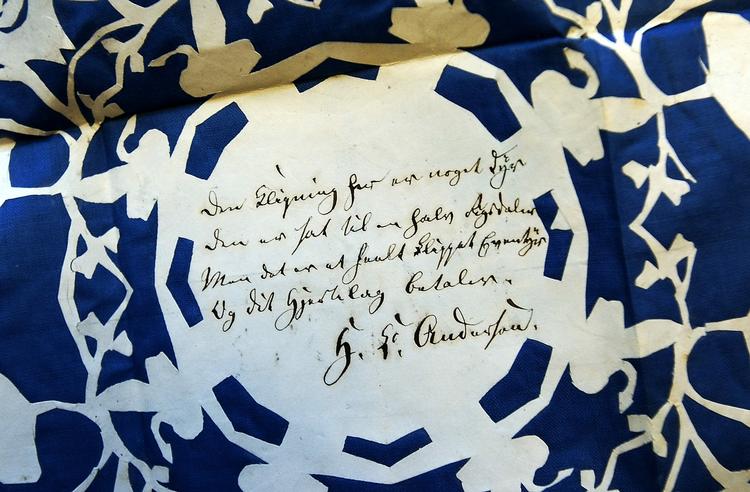 Den Klipning her er noget dyr
den er sat til en halv Rigsdaler
Men det er et heelt klippet Eventyr
Og dit Hjertelag betaler.
H. C. Andersen.